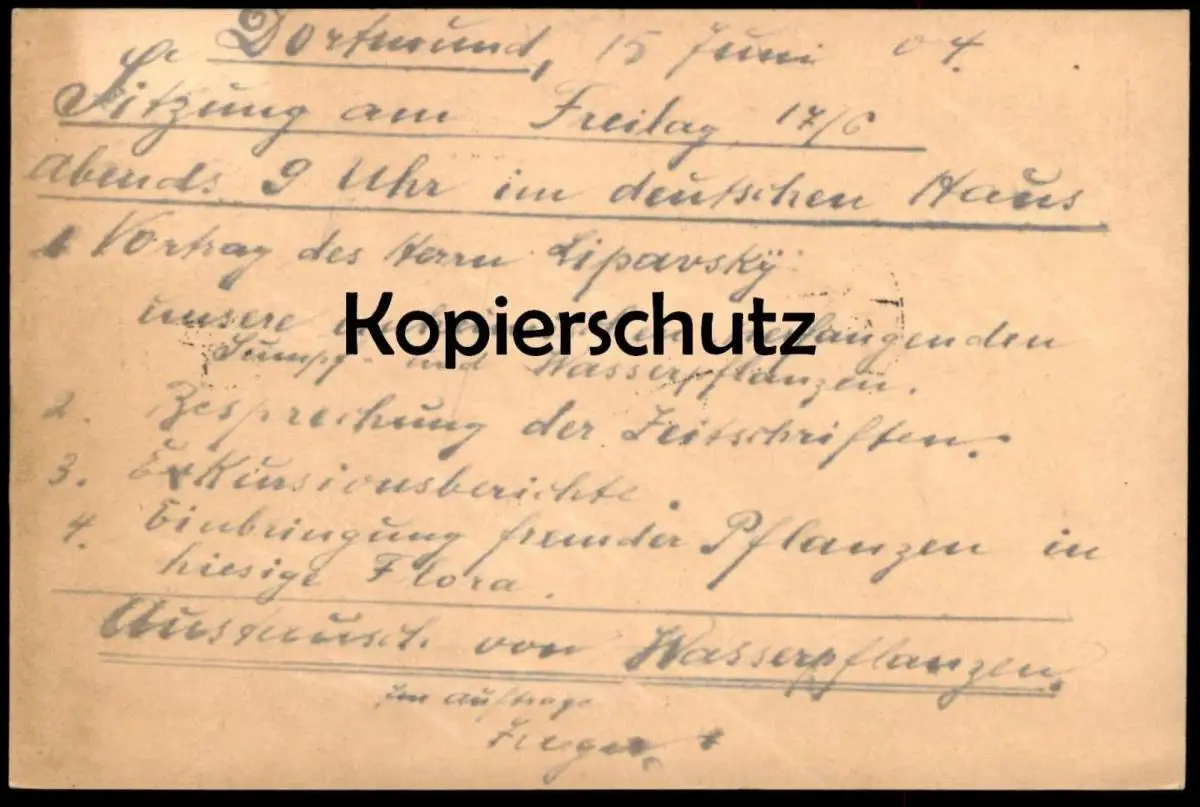 Dortmund, 15 Juni 04.
Sitzung am Freitag 17/6
abends 9 Uhr im deutschen Haus
1 Vortrag des Herrn Lipavský
unsere
Kopierschutz
Sumpf- und Wasserpflanzen.
2. Besprechung der Zeitschriften.
3. Exkursionsberichte.
4. Einbringung fremder Pflanzen in
hiesige Flora.
Austausch von Wasserpflanzen.
im auftrage